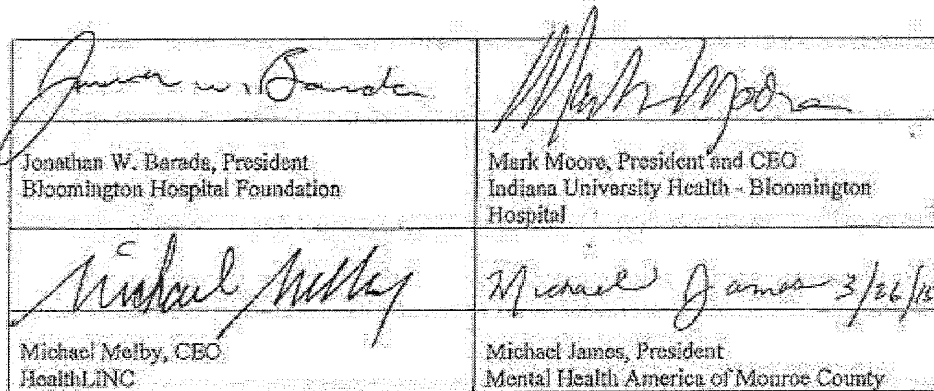 Jonathan W. Barada
Mark Moore
Jonathan W. Barada, President
Bloomington Hospital Foundation
Mark Moore, President and CEO
Indiana University Health - Bloomington
Hospital
Michael Melby
Michael James 3/26/12
Michael Melby, CEO
HealthLINC
Michael James, President
Mental Health America of Monroe County